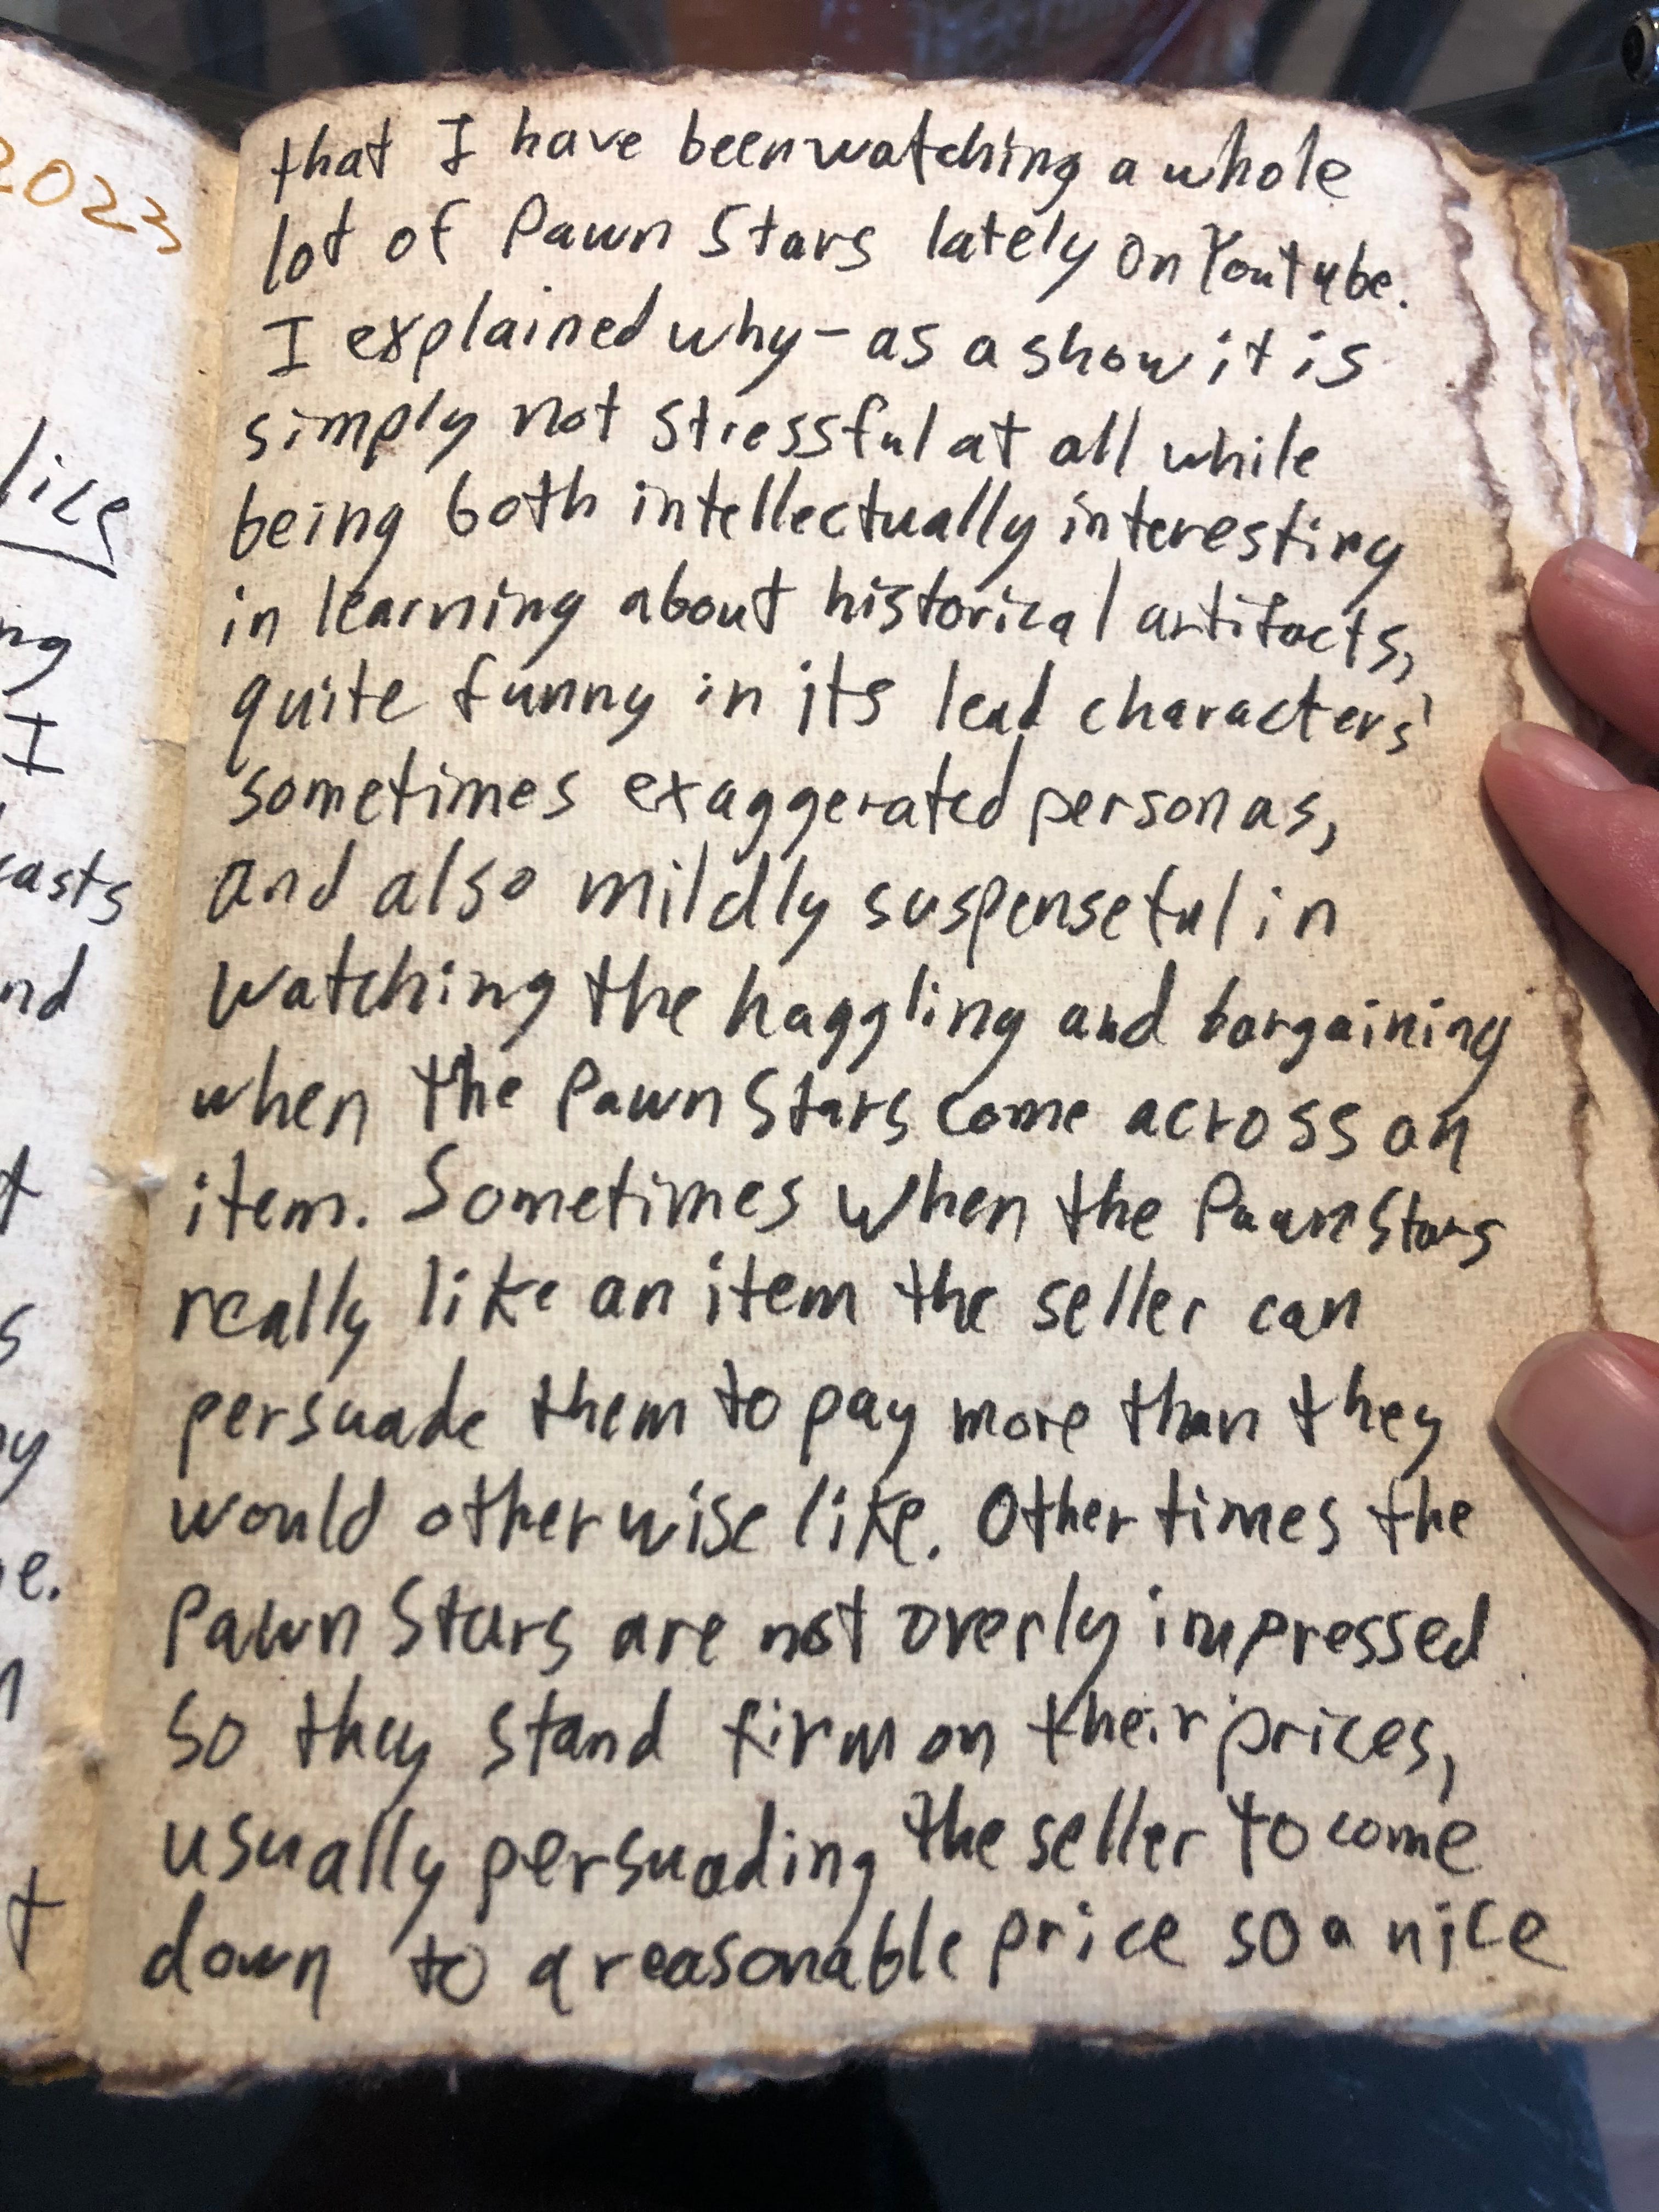 2023
that I have been watching a whole
lot of Pawn Stars lately on Youtube.
I explained why – as a show it is
simply not stressful at all while
being both intellectually interesting
in learning about historical artifacts,
quite funny in its lead characters'
sometimes exaggerated personas,
and also mildly suspenseful in
watching the haggling and bargaining
when the Pawn Stars come across an
item. Sometimes when the Pawn Stars
really like an item the seller can
persuade them to pay more than they
would otherwise like. Other times the
Pawn Stars are not overly impressed
so they stand firm on their prices,
usually persuading the seller to come
down to a reasonable price so a nice